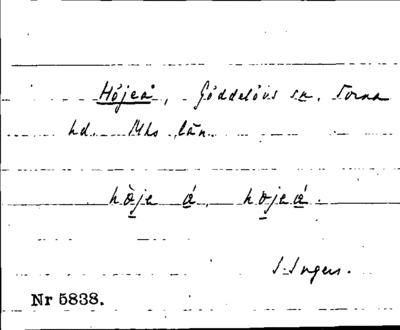 Höjeå, Göddelövs sn. Torna
hd. Mhs län.
hàje á, hojeá.
I. Ingers.
Nr 5838.